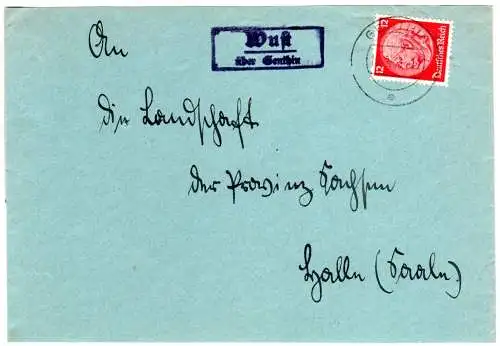 An
Wust
über Genthin
12 12
Deutsches Reich
die Landschaft
der Provinz Sachsen
Halle (Saale)